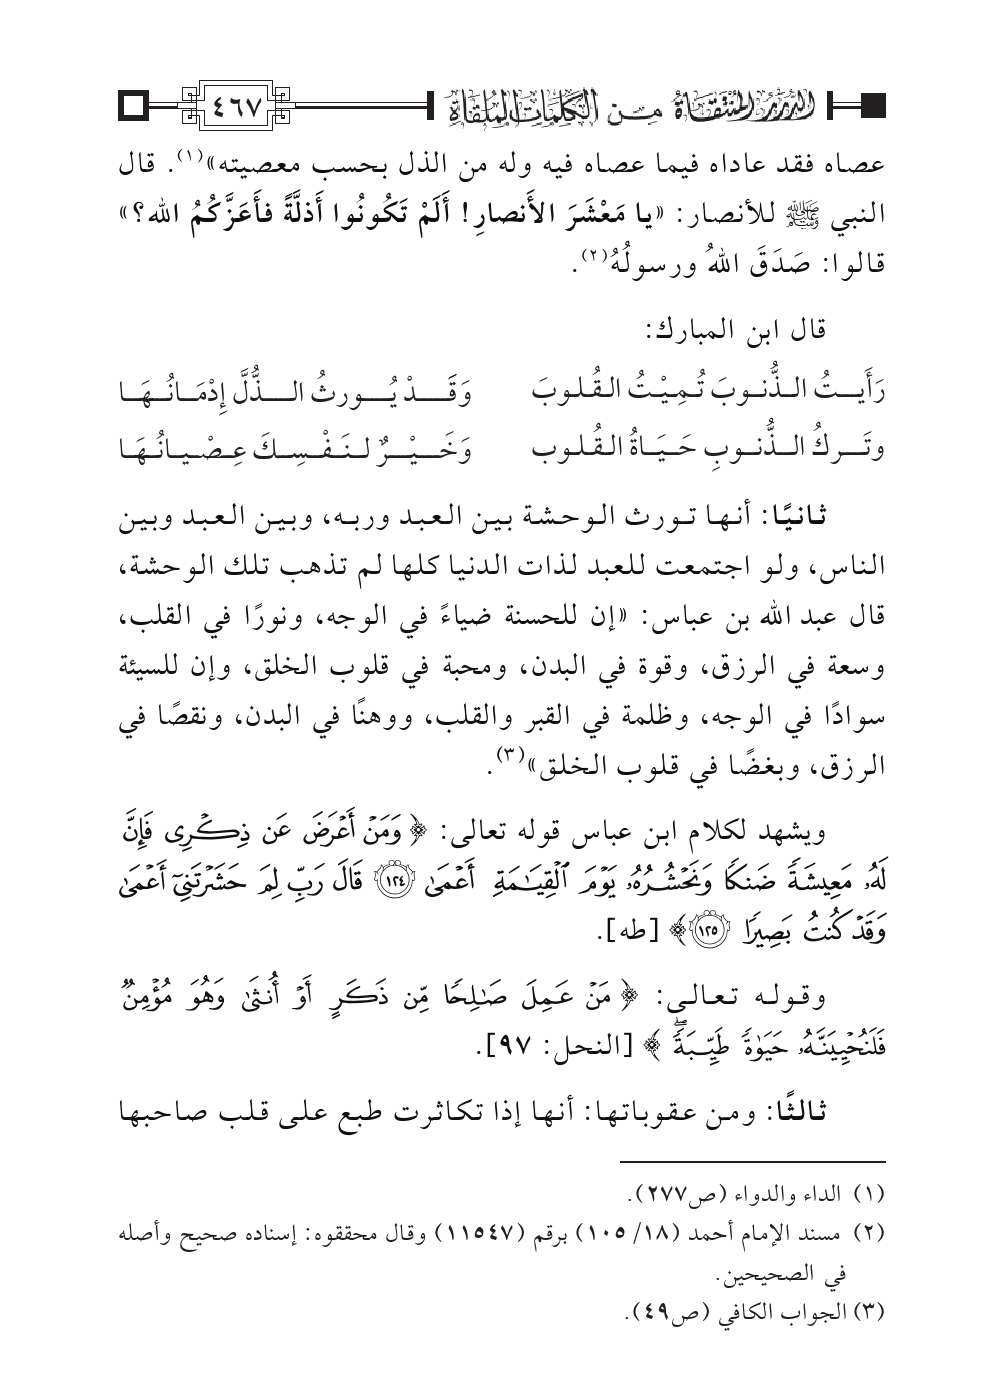 الدرر المنتقاة من الكلمات الملقاة
٤٦٧
عصاه فقد عاداه فيما عصاه فيه وله من الذل بحسب معصيته»(١). قال
النبي ﷺ للأنصار: «يا مَعْشَرَ الأَنصارِ! أَلَمْ تَكُونُوا أَذلَّةً فأَعَزَّكُمُ الله؟»
قالوا: صَدَقَ اللهُ ورسولُهُ(٢).
قال ابن المبارك:
رَأَيتُ الذُّنوبَ تُمِيْتُ القُلوبَ وَقَدْ يُورثُ الذُّلَّ إِدْمَانُهَا
وتَركُ الذُّنوبِ حَيَاةُ القُلوب وَخَيْرٌ لنَفْسِكَ عِصْيانُهَا
ثانيًا: أنها تورث الوحشة بين العبد وربه، وبين العبد وبين
الناس، ولو اجتمعت للعبد لذات الدنيا كلها لم تذهب تلك الوحشة،
قال عبد الله بن عباس: «إن للحسنة ضياءً في الوجه، ونورًا في القلب،
وسعة في الرزق، وقوة في البدن، ومحبة في قلوب الخلق، وإن للسيئة
سوادًا في الوجه، وظلمة في القبر والقلب، ووهنًا في البدن، ونقصًا في
الرزق، وبغضًا في قلوب الخلق»(٣).
ويشهد لكلام ابن عباس قوله تعالى: ﴿وَمَنْ أَعْرَضَ عَن ذِكْرِى فَإِنَّ
لَهُۥ مَعِيشَةً ضَنكًا وَنَحْشُرُهُۥ يَوْمَ ٱلْقِيَـٰمَةِ أَعْمَىٰ ١٢٤ قَالَ رَبِّ لِمَ حَشَرْتَنِىٓ أَعْمَىٰ
وَقَدْ كُنتُ بَصِيرًا ١٢٥﴾ [طه].
وقوله تعالى: ﴿مَنْ عَمِلَ صَـٰلِحًا مِّن ذَكَرٍ أَوْ أُنثَىٰ وَهُوَ مُؤْمِنٌ
فَلَنُحْيِيَنَّهُۥ حَيَوٰةً طَيِّبَةًۖ﴾ [النحل: ٩٧].
ثالثًا: ومن عقوباتها: أنها إذا تكاثرت طبع على قلب صاحبها
(١) الداء والدواء (ص٢٧٧).
(٢) مسند الإمام أحمد (١٨/ ١٠٥) برقم (١١٥٤٧) وقال محققوه: إسناده صحيح وأصله
في الصحيحين.
(٣) الجواب الكافي (ص٤٩).